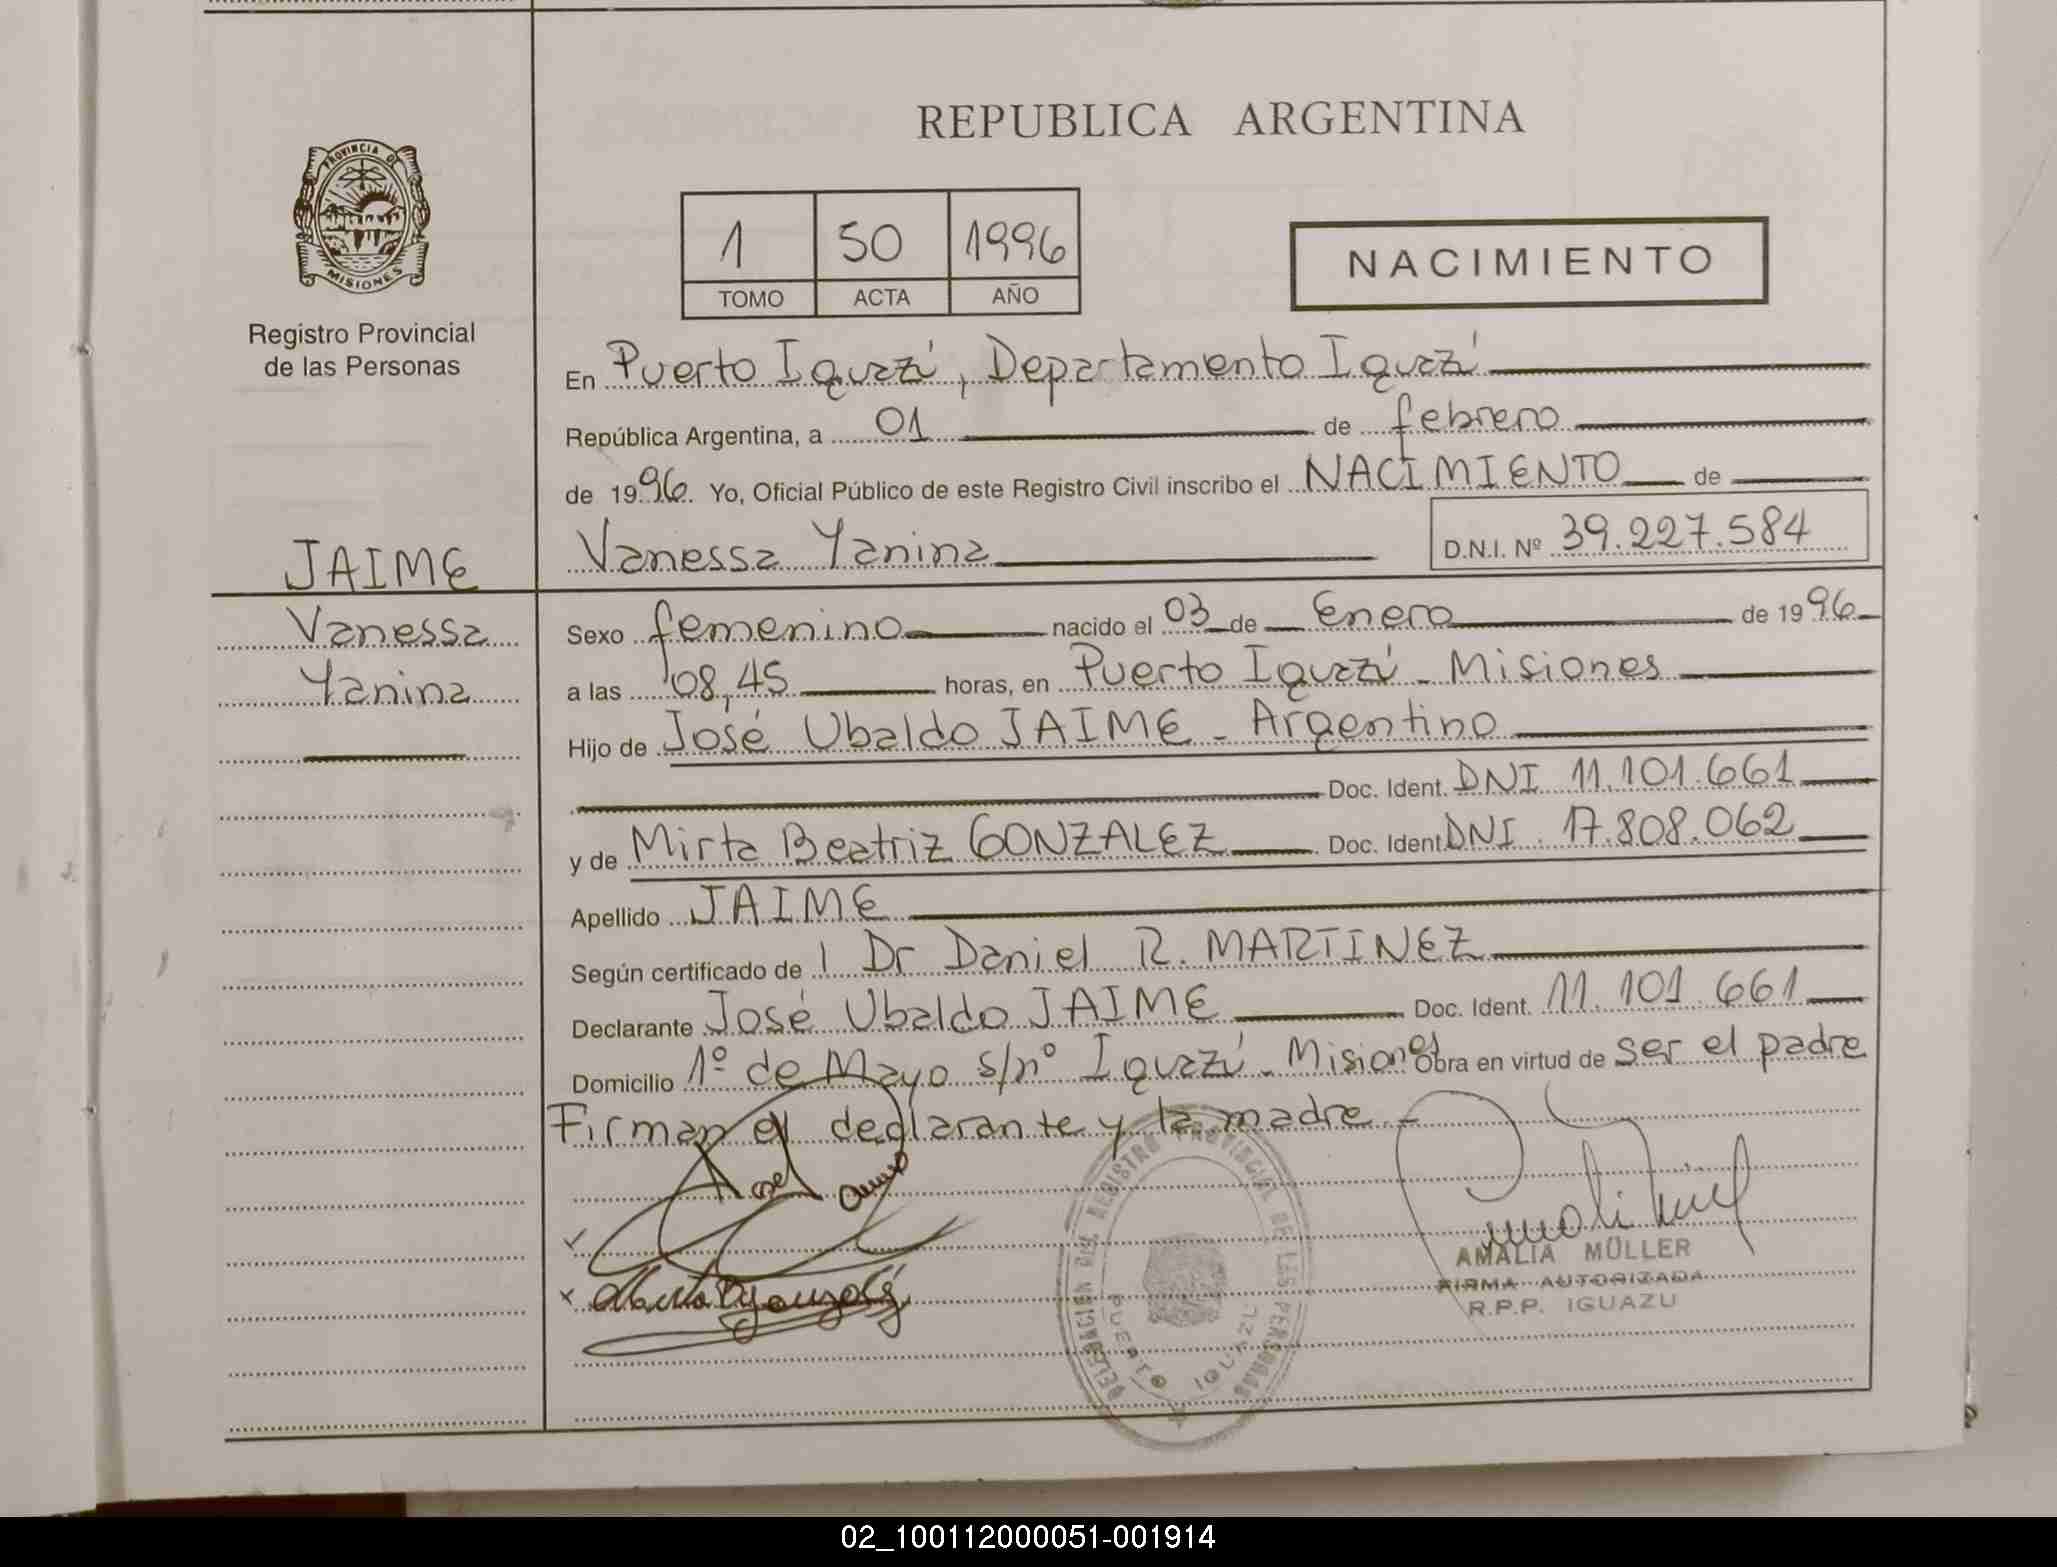 REPUBLICA ARGENTINA
PROVINCIA DE
MISIONES
Registro Provincial
de las Personas
1 50 1996
TOMO ACTA AÑO
NACIMIENTO
En Puerto Iguazú, Departamento Iguazú
República Argentina, a 01 de febrero
de 1996. Yo, Oficial Público de este Registro Civil inscribo el NACIMIENTO de
Vanessa Yanina D.N.I. Nº 39.227.584
JAIME
Vanessa
Yanina
Sexo femenino nacido el 03 de Enero de 1996
a las 08,45 horas, en Puerto Iguazú - Misiones
Hijo de José Ubaldo JAIME - Argentino
Doc. Ident. DNI 11.101.661
y de Mirta Beatriz GONZALEZ Doc. Ident. DNI. 17.808.062
Apellido JAIME
Según certificado de l Dr Daniel R. MARTINEZ
Declarante José Ubaldo JAIME Doc. Ident. 11.101.661
Domicilio 1º de Mayo s/nº Iguazú - Misiones Obra en virtud de ser el padre
Firman el declarante y la madre -
DELEGACION DEL REGISTRO PROVINCIAL DE LAS PERSONAS
PUERTO IGUAZU
AMALIA MÜLLER
FIRMA AUTORIZADA
R.P.P. IGUAZU
02_100112000051-001914